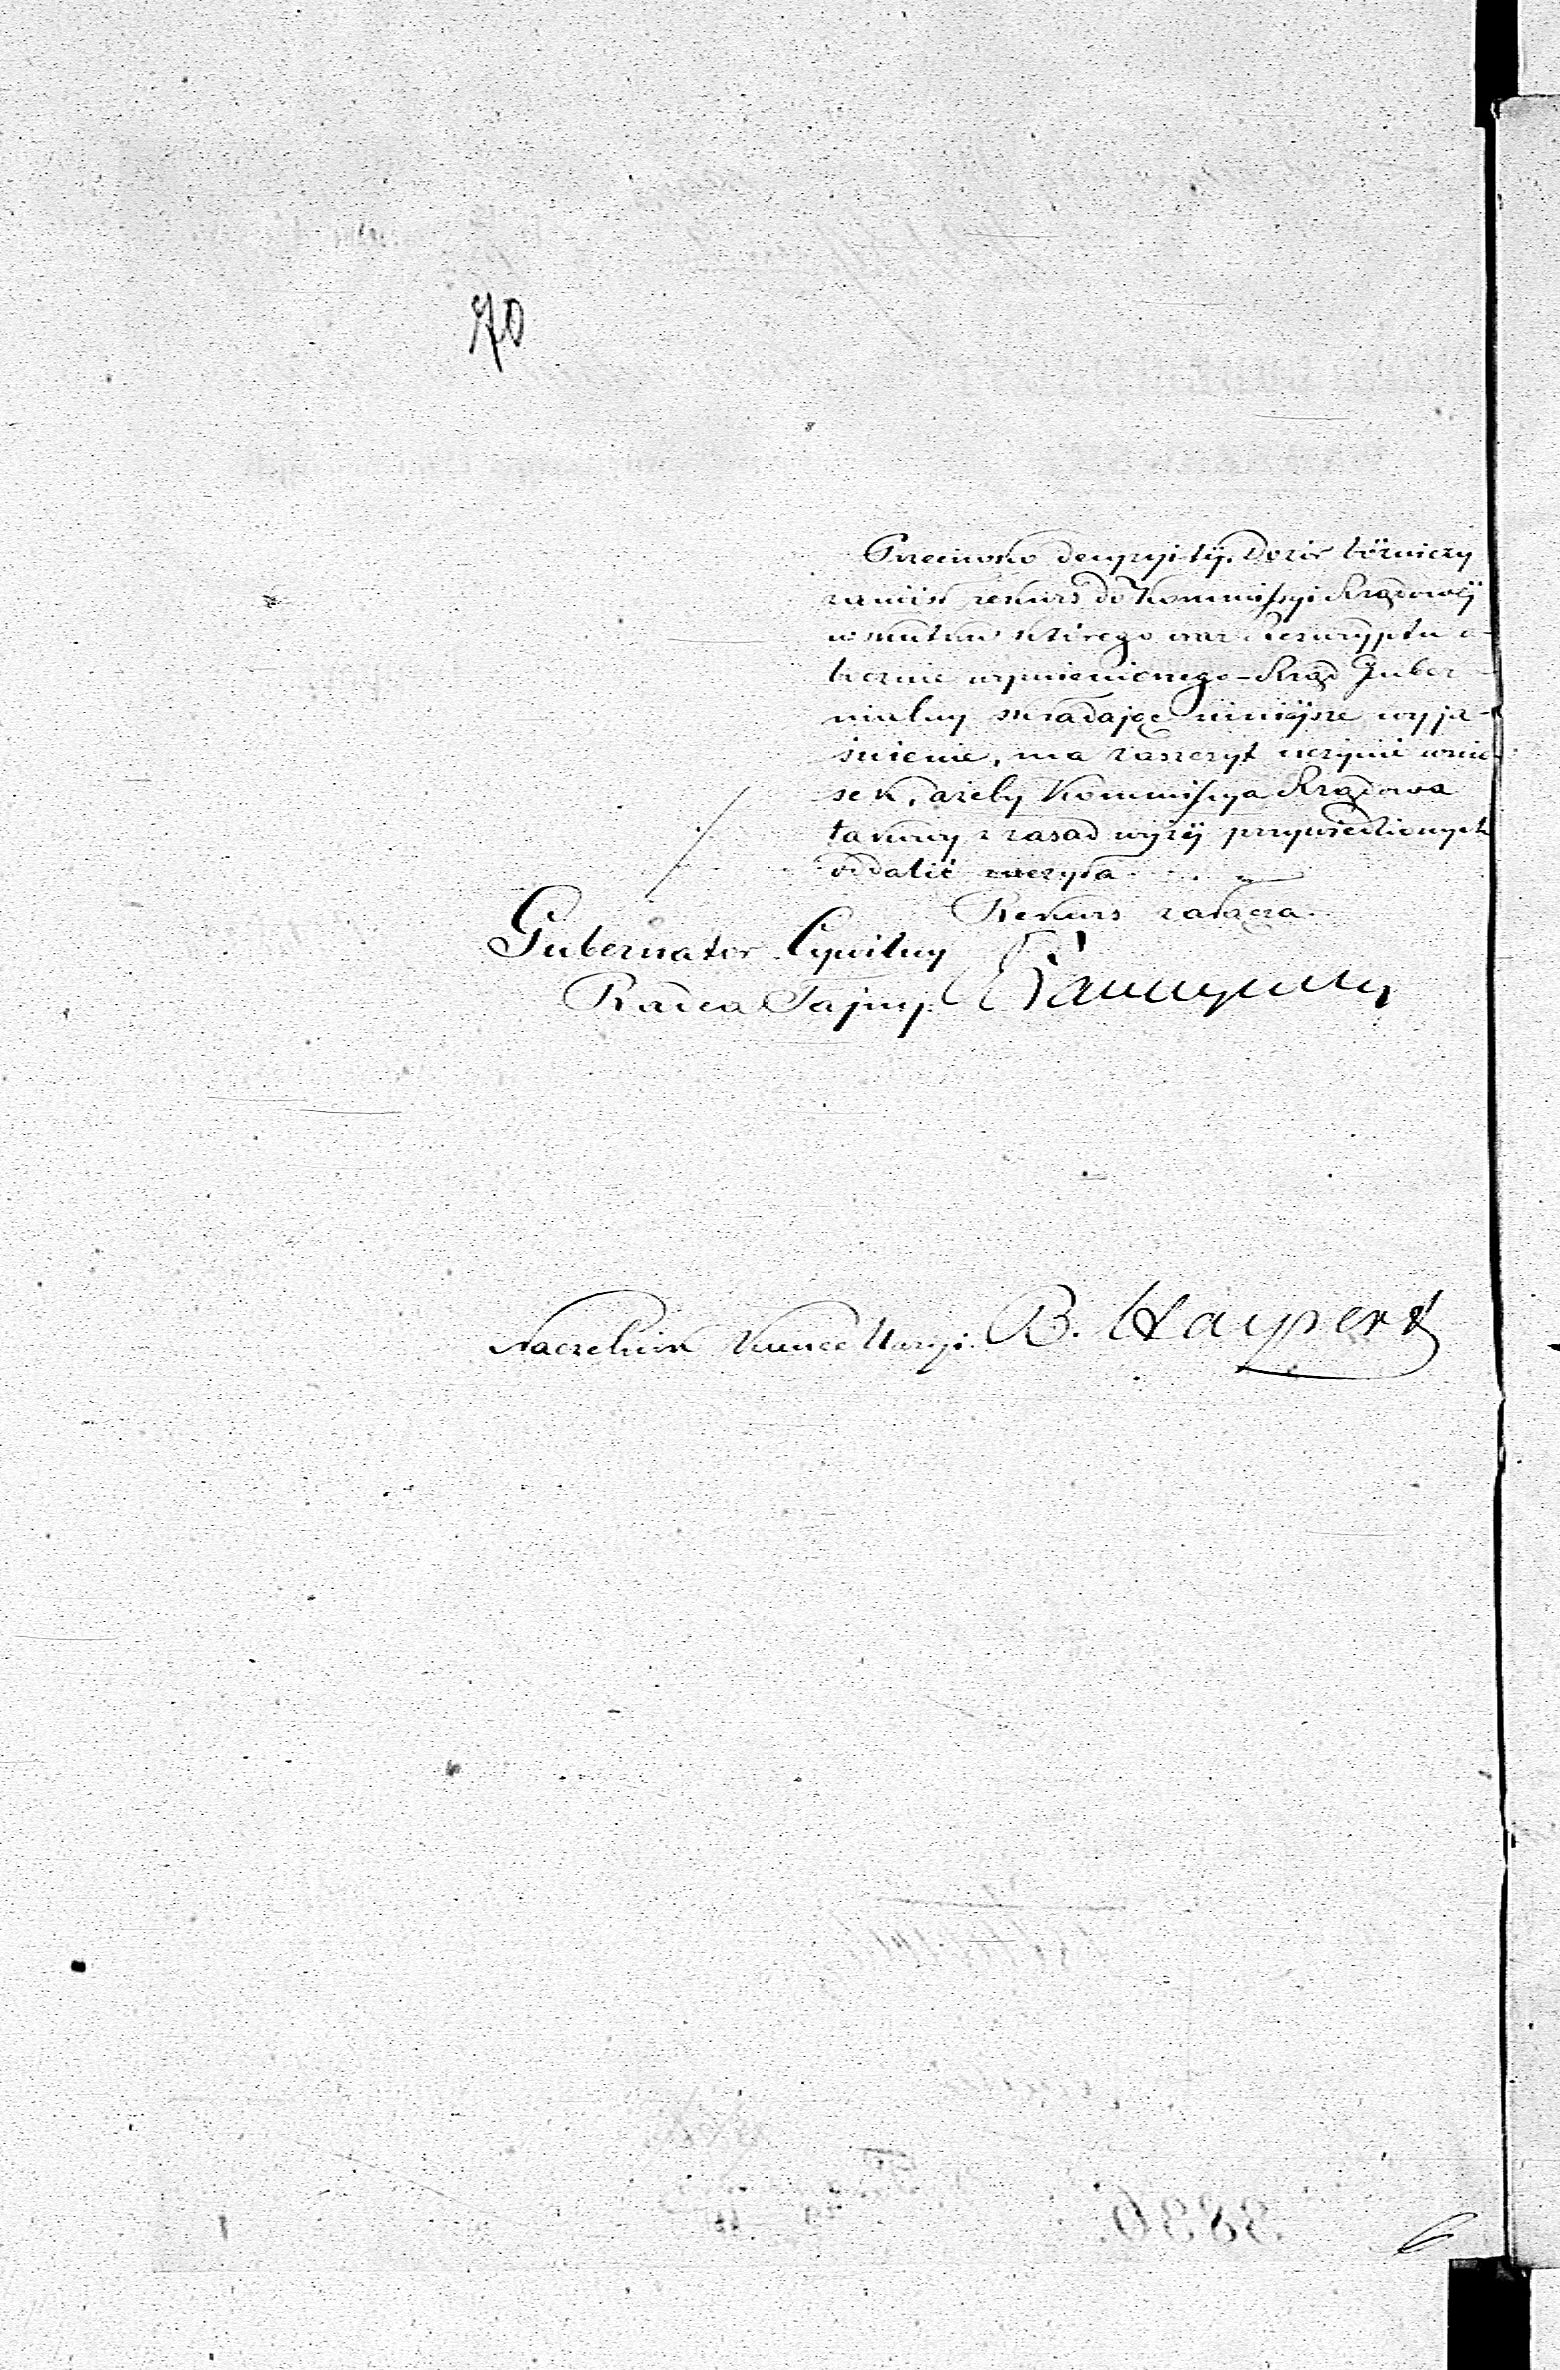 70
Przeciwko decyzyi téj, Dozór bóżniczy
zaniósł rekurs do Kommissyi Rządowéj
w skutku którego oraz Reskryptu o-
becnie wymienionego – Rząd Guber-
nialny składając niniéjsze wyja-
śnienie, ma zaszczyt uczynić wnio-
sek, ażeby Kommissya Rządowa
takowy z zasad wyżéj przywiedzionych
oddalić raczyła.
Rekurs załącza.
Gubernator Cywilny
Radca Tajny.
Naczelnik Kancellaryi. B. Haypert
3836